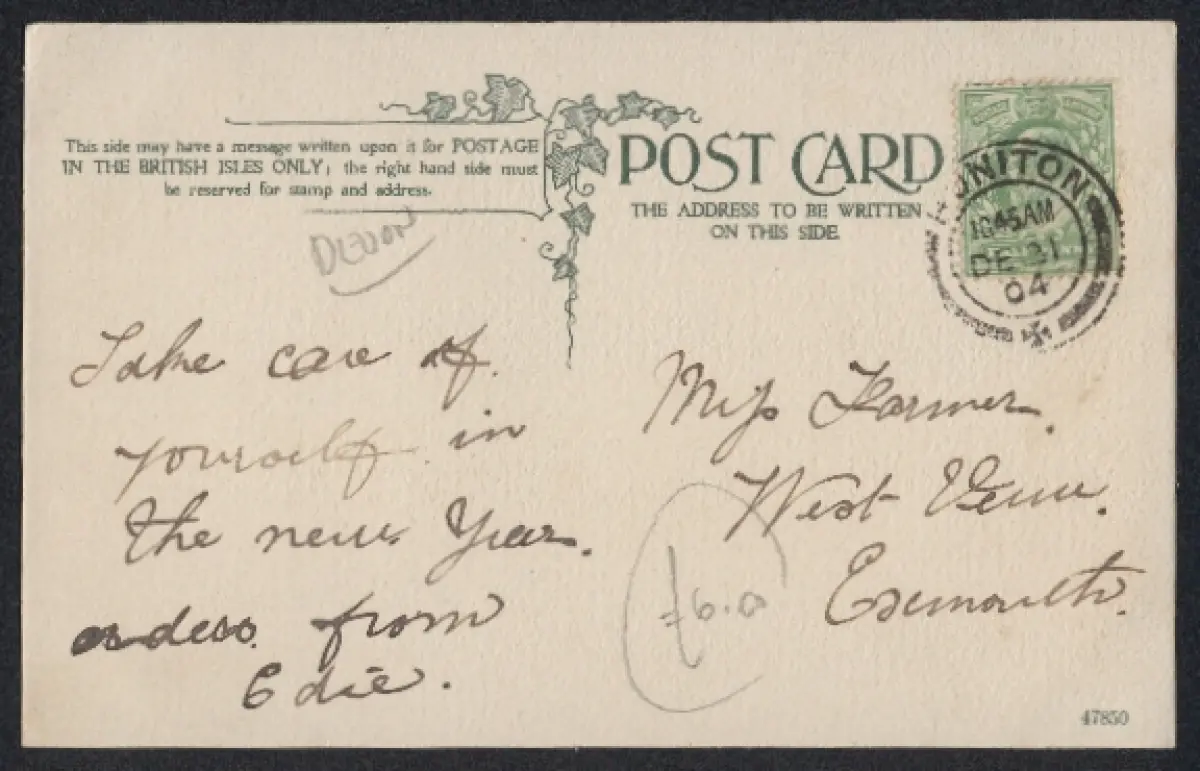 This side may have a message written upon it for POSTAGE
IN THE BRITISH ISLES ONLY; the right hand side must
be reserved for stamp and address.
POST CARD
THE ADDRESS TO BE WRITTEN
ON THIS SIDE
HONITON
10 45 AM
DE 31
04
DEVON
Take care of
yourself in
the new Year.
from
Edie.
Miss Farmer.
West View.
Exmouth.
£6.0
47850